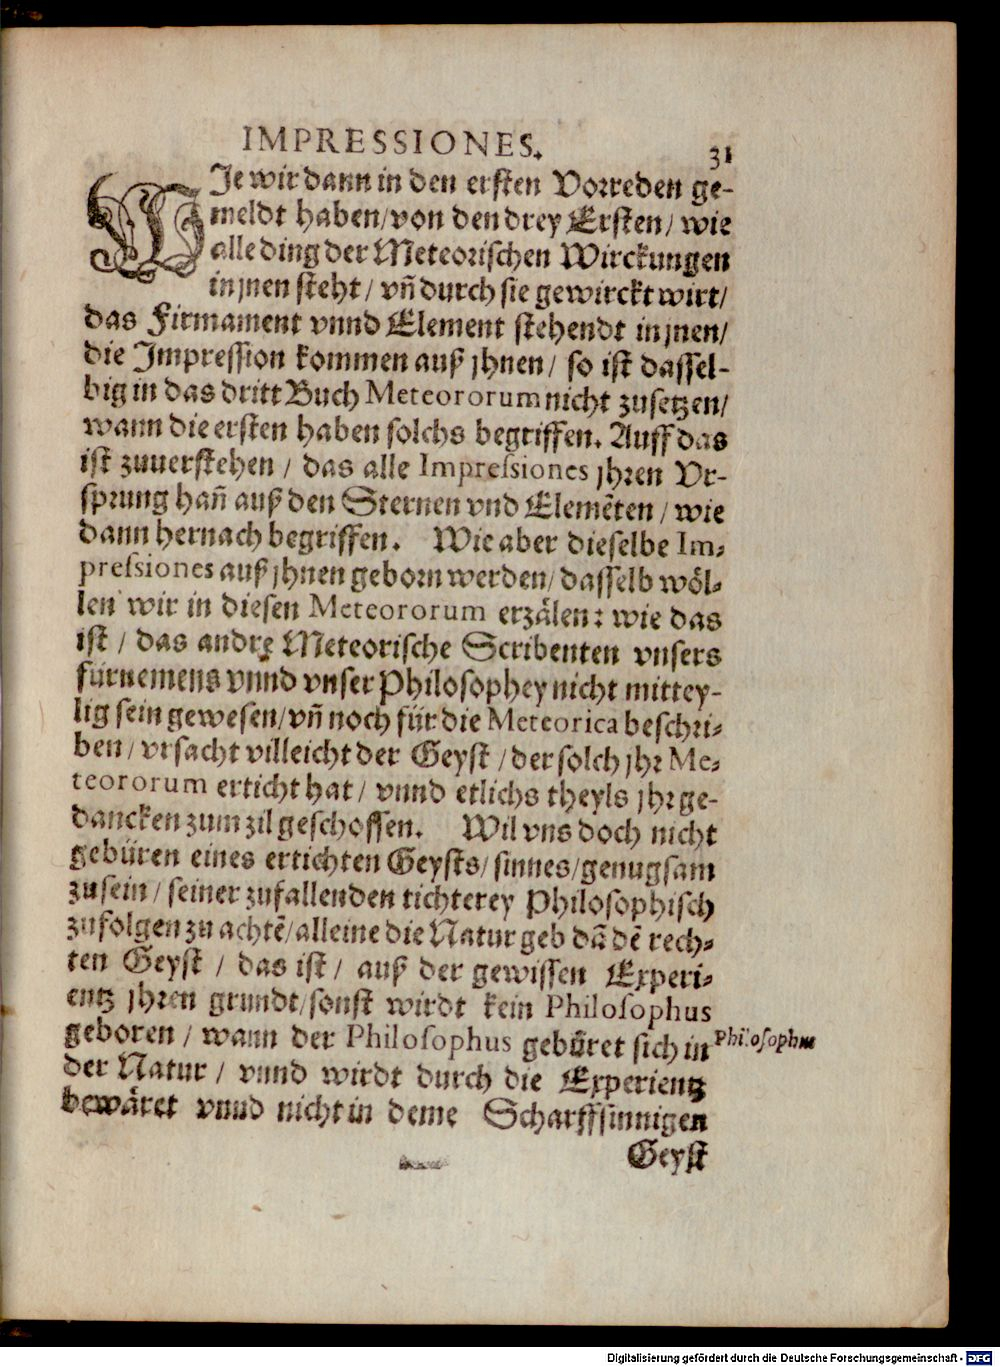 IMPRESSIONES.
31
WJe wir dann in den ersten Vorreden ge-
meldt haben/von den drey Ersten/ wie
alle ding der Meteorischen Wirckungen
in jnen steht/ vñ durch sie gewirckt wirt/
das Firmament vnnd Element stehendt in jnen/
die Impression kommen auß jhnen/ so ist dassel-
big in das dritt Buch Meteororum nicht zusetzen/
wann die ersten haben solchs begriffen. Auff das
ist zuuerstehen / das alle Impreſsiones jhren Vr-
sprung hañ auß den Sternen vnd Elemẽten / wie
dann hernach begriffen. Wie aber dieselbe Im-
preſsiones auß jhnen geborn werden/ dasselb wöl-
len wir in diesen Meteororum erzälen: wie das
ist / das andre Meteorische Scribenten vnsers
fürnemens vnnd vnser Philosophey nicht mittey-
lig sein gewesen/vñ noch für die Meteorica beschri-
ben/ vrsacht villeicht der Geyst /der solch jhr Me-
teororum erticht hat/ vnnd etlichs theyls jhr ge-
dancken zum zil geschossen. Wil vns doch nicht
gebüren eines ertichten Geysts/ sinnes/genugsam
zusein/ seiner zufallenden tichterey Philosophisch
zufolgen zu achtẽ/alleine die Natur geb dã dẽ rech-
ten Geyst / das ist/ auß der gewissen Experi-
entz jhren grundt/sonst wirdt kein Philosophus
geboren/ wann der Philosophus gebüret sich in
Philosophus
der Natur/ vnnd wirdt durch die Experientz
bewäret vnnd nicht in deme Scharffsinnigen
Geyst
Digitalisierung gefördert durch die Deutsche Forschungsgemeinschaft - DFG